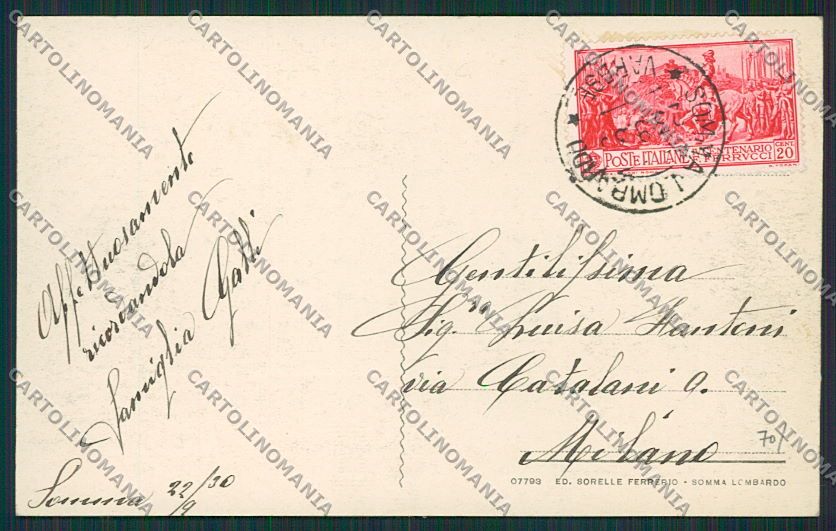 Affettuosamente
ricordandola
Famiglia Galli
Somma 22/9/30
POSTE ITALIANE
CENTENARIO
F. FERRVCCI
CENT
20
SOMMA LOMBARDO
VARESE
Gentilissima
Sig.ra Luisa Fantoni
via Catalani 9.
Milano
70
07793 ED. SORELLE FERRERIO - SOMMA LOMBARDO
CARTOLINOMANIA